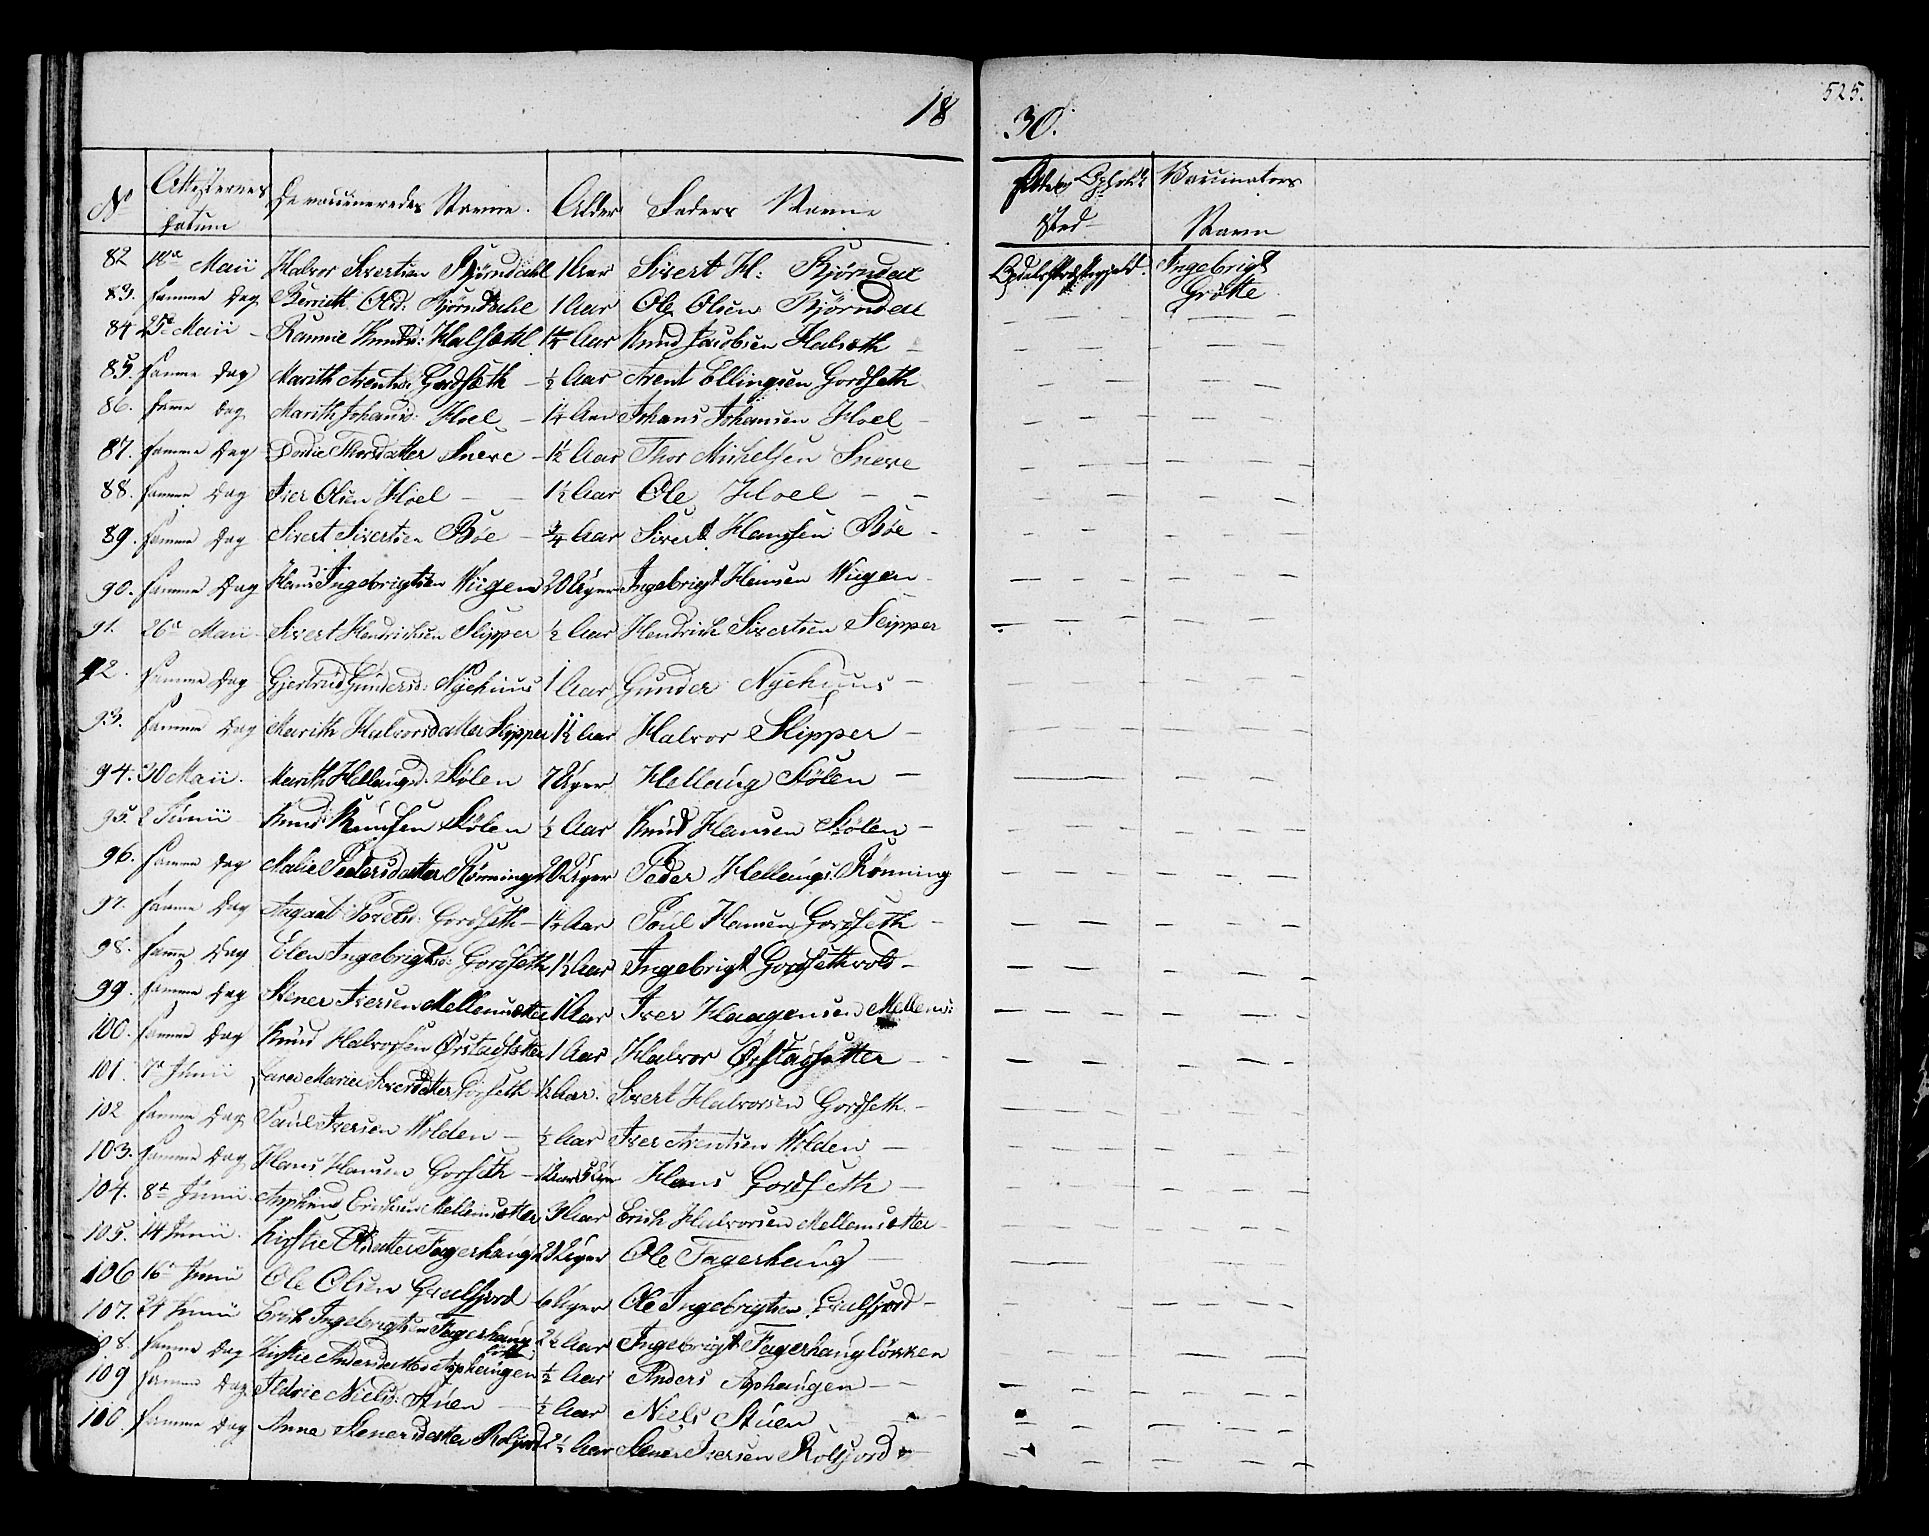 18 30.
525.
No Attesternes Datum De vaccineredes Navne. Alder Faders Navne Opholds Sted Vaccinators Navn
82 18de Maii Halvor Sivertsen Bjørndahl 1 Aar Sivert H: Bjørndal Opdals Præstegjeld. Ingebrigt Grøtte
83. samme Dag Berrith Olsd: Bjørndahl 1 Aar Ole Olsen Bjørndal
84 25 Maii Knudsd: Halsethl Aar Knud Jacobsen Halseth
85. samme Dag Marith Arentsd: Gordseth ½ Aar Arent Ellingsen Gordseth
86. samme Dag Marith Johansd: Hoel 1¼ Aar Johans Johansen Hoel
87. samme Dag Dordie Thorsdatter Sneve 1½ Aar Thor Michelsen Sneve
88. samme Dag Iver Olsen Hoel 1½ Aar Ole Hoel
89. samme Dag Sivert Sivertsen Bøe ¾ Aar Sivert Hansen Bøe
90. samme Dag Hans Ingebrigtsen Viigen 20 Uger Ingebrigt Hansen Viigen
91. 26de Maii Sivert Hendrichsen Slipper ½ Aar Hendrich Sivertsen Slipper
92. samme Dag Gjertrud Gundersd: Nyehuus 1 Aar Gunder Nyehuus
93. samme Dag Marith Halvorsdatter Slipper 1½ Aar Halvor Slipper
94. 30 Maii. Marith Hellaugsd. Stølen 7 Uger Hellaug Stølen
95. 2 Junii Knud Knudsen Stølen ½ Aar Knud Hansen Stølen
96. samme Dag Malie Pedersdatter Rønning 20 Uger Peder Hellaugs. Rønning
97. samme Dag Aagaat Povelsd: Gordseth Aar Poul Hansen Gordseth
98. samme Dag Elen Ingebrigtsd: Gordseth 1½ Aar Ingebrigt Gordsethvold
99. samme Dag Stener Iversen Mellemsetter 1 Aar Iver Haagensen Mellems:
100. samme Dag Knud Halvorsen Ørstadsetter 1 Aar Halvor Ørstadsetter
101. 7de Junii Marie Sivertsdatter Gorseth ½ Aar. Sivert Halvorsen Gordseth.
102 samme Dag Paul Iversen Wolden ½ Aar Iver Arentsen Wolden
103. samme Dag Hans Hansen Gorseth Hans Gordseth
104. 8de Junii Erichsen Mellemsetter 3 Aar Erich Halvorsen Mellemsetter
105. 14 Junii. Kirstie Olsdatter Fagerhaug Uger Ole Fagerhaug
106 16 Junii Ole Olsen Graufjord 6 Uger Ole Ingebrigtsen
107. 24 Junii Erich Ingebrigtsen Fagerhaug 2½ Aar Ingebrigt Fagerhaugløkken
108. samme Dag Kirstie Andersdatter Asphaugen ½ Aar Anders Asphaugen
109 samme Dag Ildrie Nielsd: Stuen ½ Aar Niels Stuen
100 samme Dag Anne Stenersdatter Rolfjord 2½ Aar Stener Iversen Rolfjord